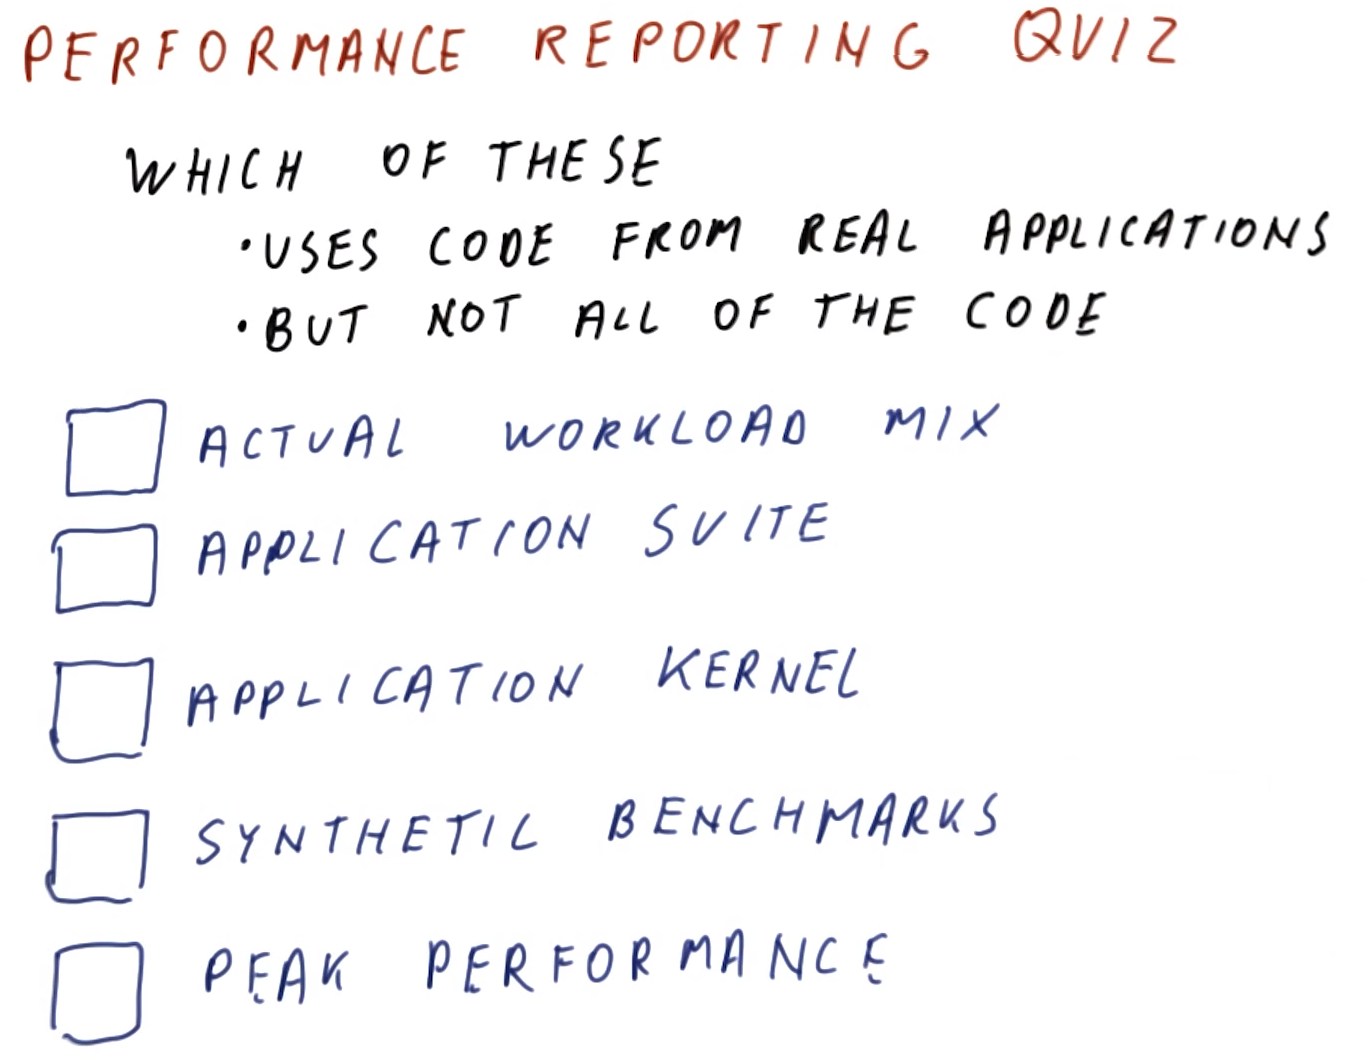 PERFORMANCE REPORTING QUIZ
WHICH OF THESE
•USES CODE FROM REAL APPLICATIONS
•BUT NOT ALL OF THE CODE
ACTUAL WORKLOAD MIX
APPLICATION SUITE
APPLICATION KERNEL
SYNTHETIC BENCHMARKS
PEAK PERFORMANCE